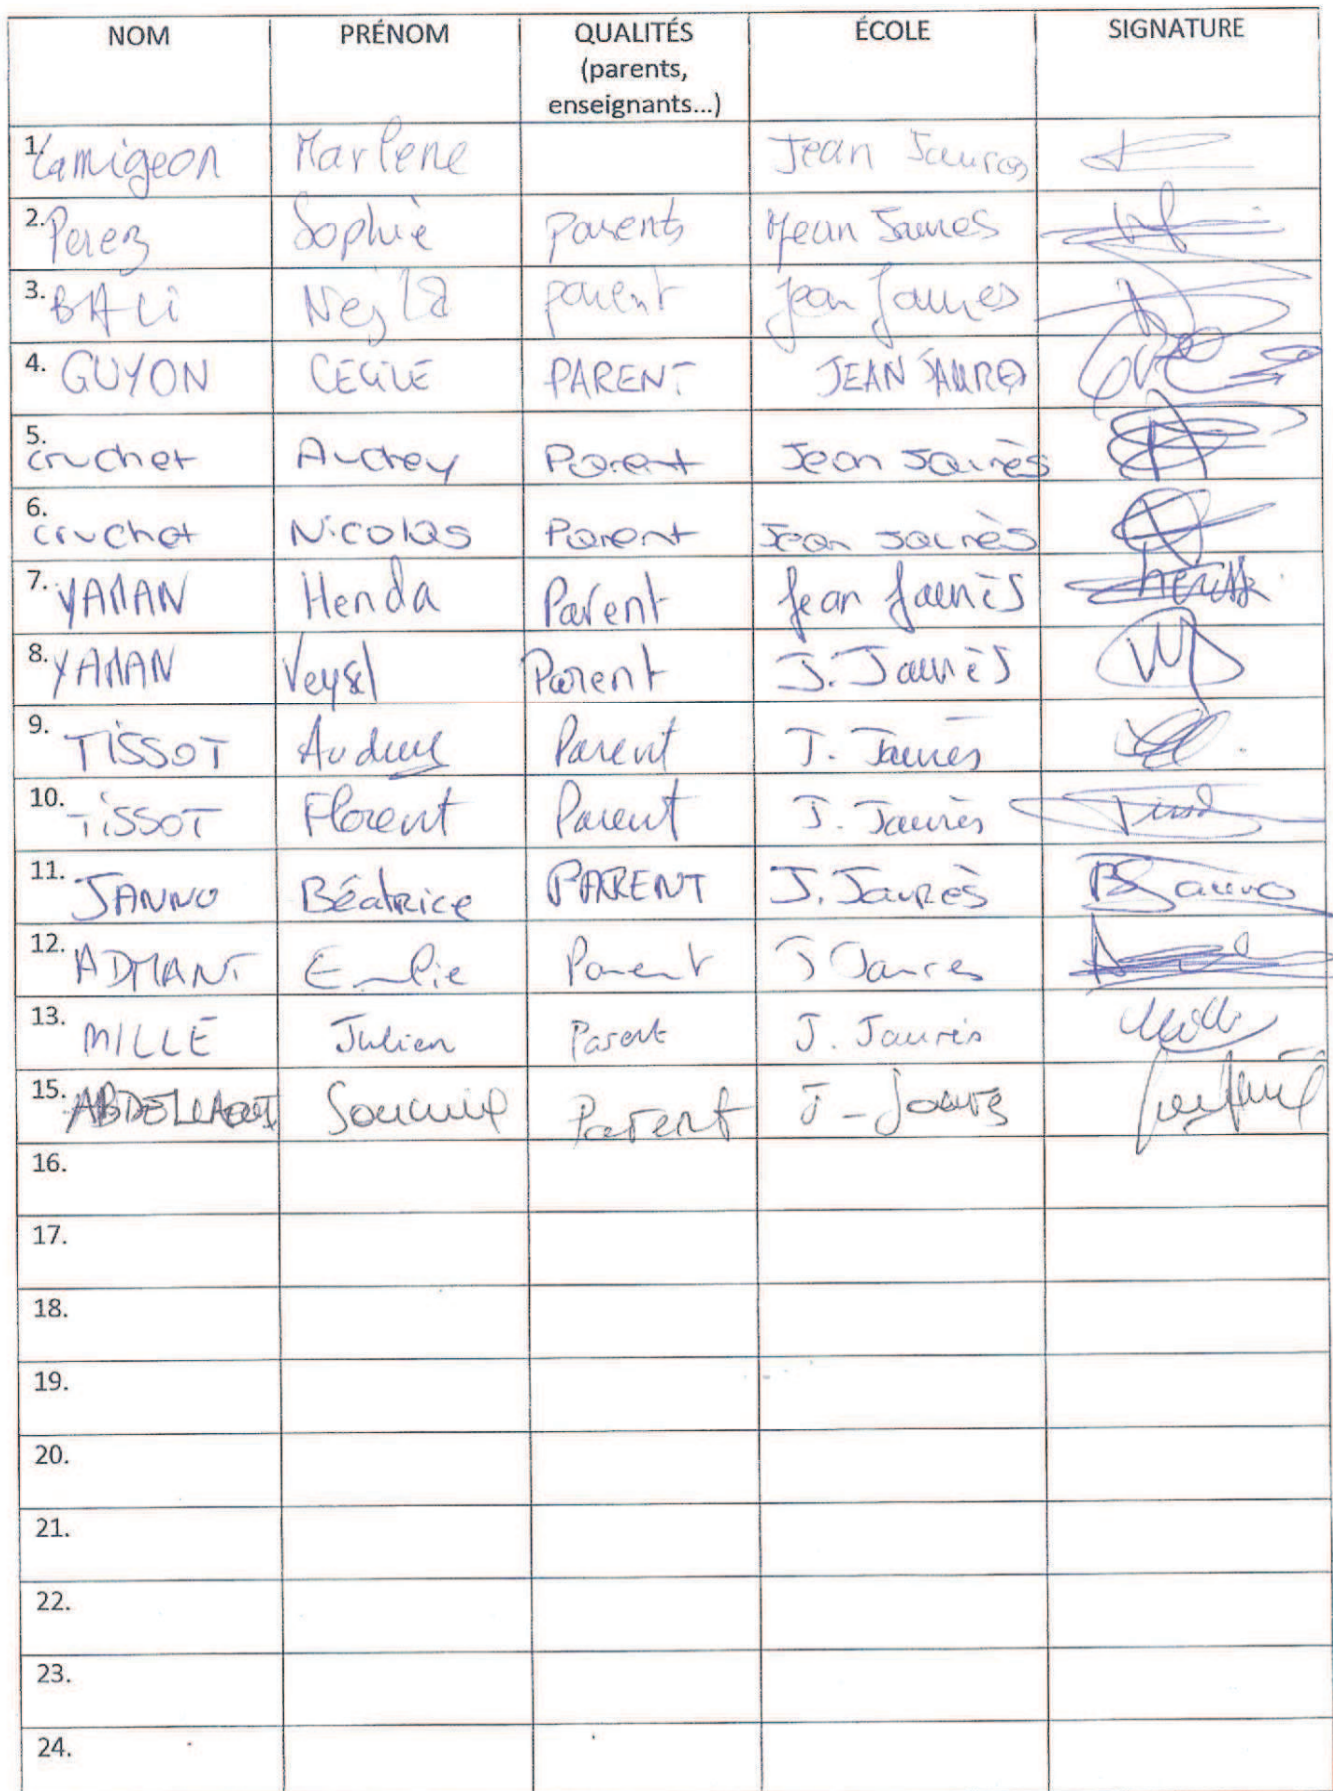 NOM PRÉNOM QUALITÉS ÉCOLE SIGNATURE
(parents,
enseignants...)
1. Lamigeon Marlene Jean Jaures
2. Perez Sophie parents Jean Jaures
3. BALI Nejla parent Jean Jaures
4. GUYON CECILE PARENT JEAN JAURES
5. cruchet Audrey Parent Jean Jaurès
6. cruchet Nicolas Parent Jean Jaurès
7. YAMAN Henda Parent Jean Jaurès
8. YAMAN Veysel Parent J. Jaurès
9. TISSOT Audrey Parent J. Jaurès
10. TISSOT Florent Parent J. Jaurès
11. JANNO Béatrice PARENT J. JAURÈS
12. ADMANT Emilie Parent J Jaures
13. MILLE Julien Parent J. Jaurès
15. Parent J-Jaures
16.
17.
18.
19.
20.
21.
22.
23.
24.